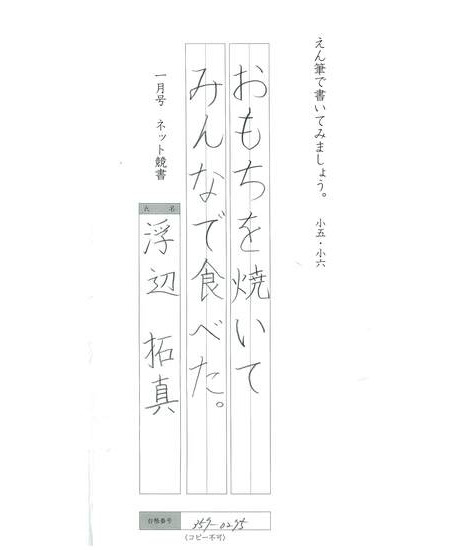 えん筆で書いてみましょう。 小五・小六
おもちを焼いて
みんなで食べた。
一月号 ネット競書
氏名
浮辺 拓真
台帳番号
359-0295
(コピー不可)